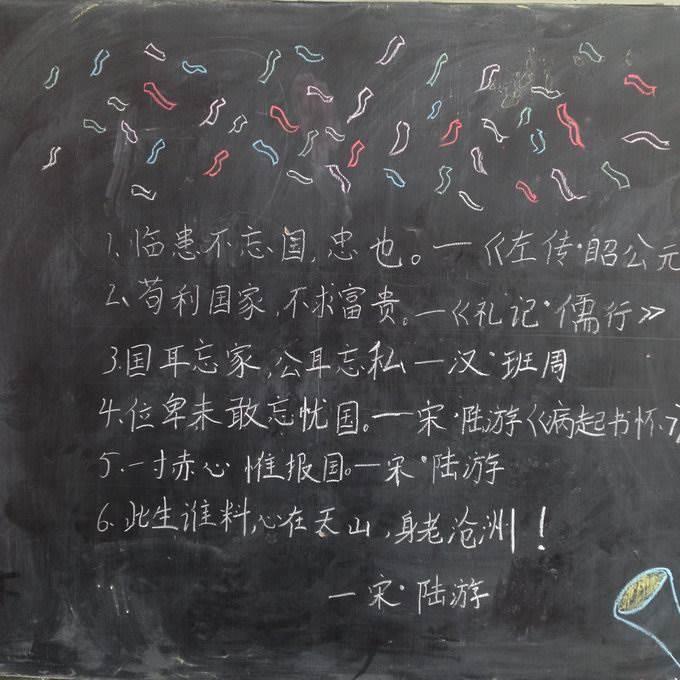 1. 临患不忘国，忠也。—《左传·昭公元
2. 苟利国家，不求富贵。—《礼记·儒行》
3. 国耳忘家，公耳忘私—汉·班周
4. 位卑未敢忘忧国。—宋·陆游《病起书怀·
5. 一寸赤心惟报国。—宋·陆游
6. 此生谁料，心在天山，身老沧洲！
—宋·陆游